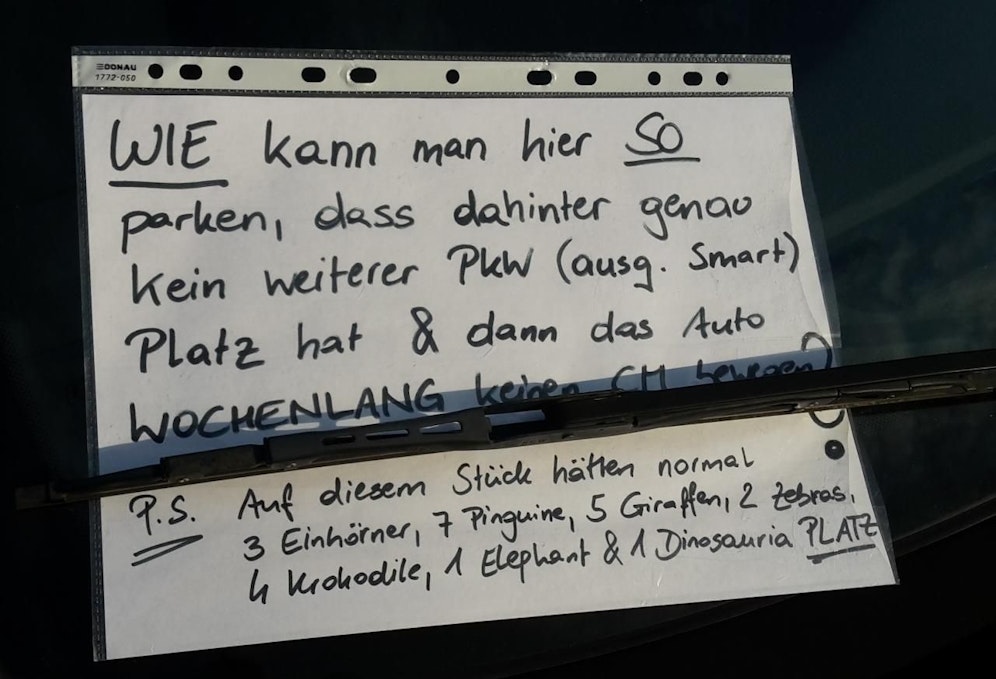 DONAU
1772-050
WIE kann man hier SO
parken, dass dahinter genau
kein weiterer PKW (ausg. Smart)
Platz hat & dann das Auto
WOCHENLANG keinen CM bewegen?
P.S. Auf diesem Stück hätten normal
3 Einhörner, 7 Pinguine, 5 Giraffen, 2 Zebras,
4 Krokodile, 1 Elephant & 1 Dinosauria PLATZ